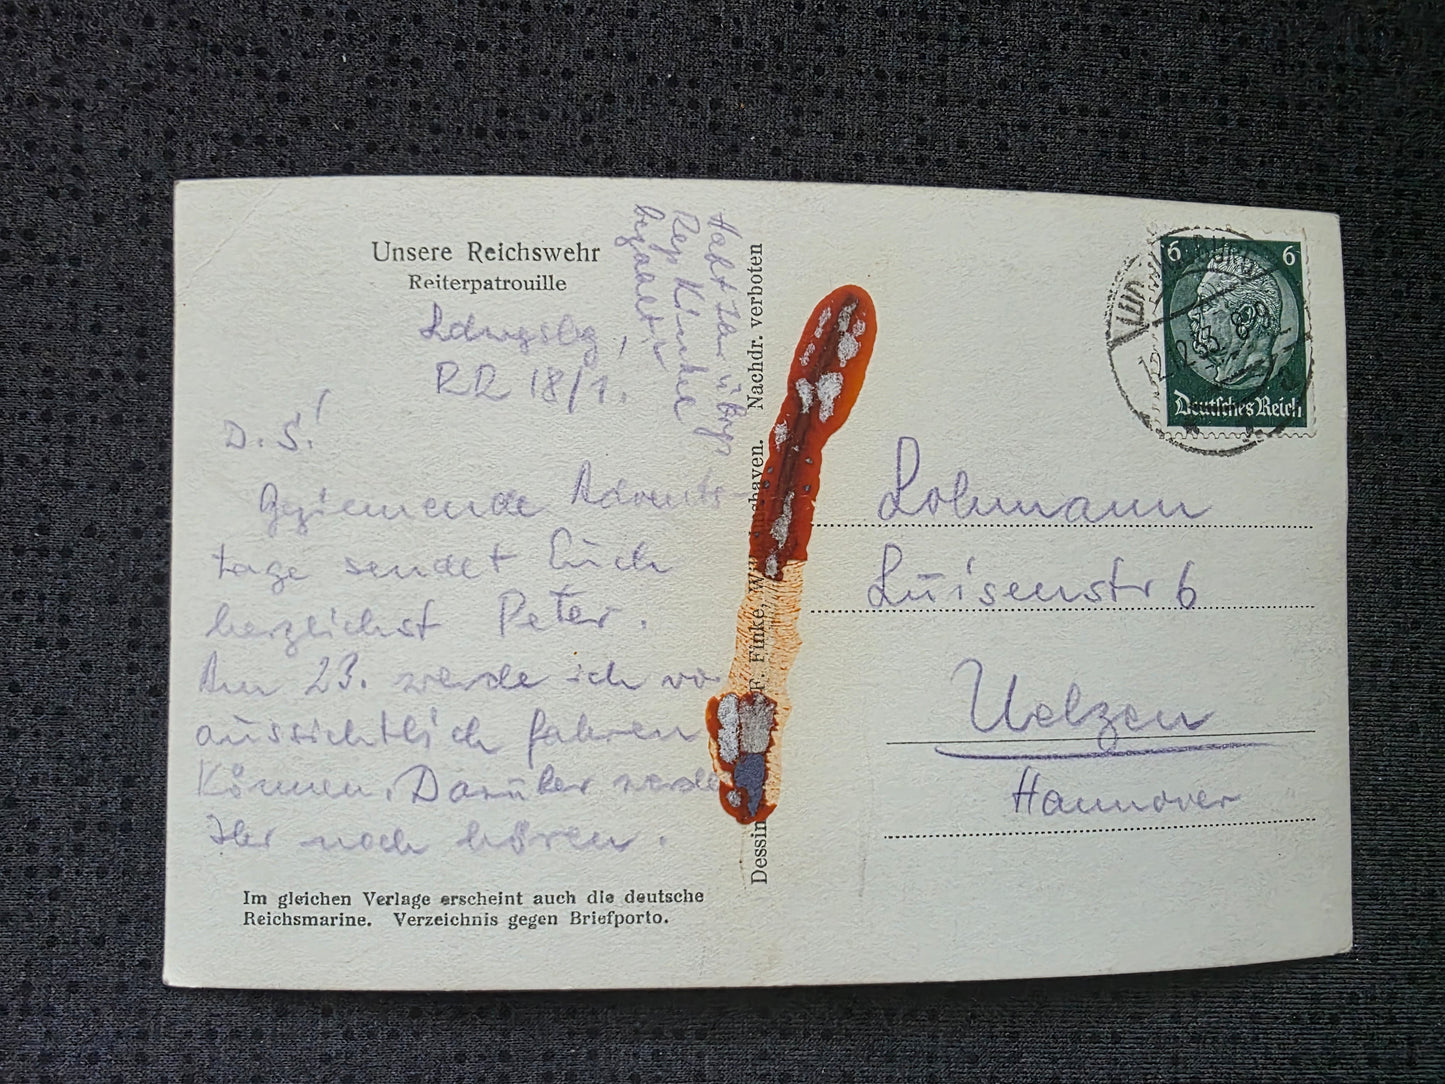 Unsere Reichswehr
Reiterpatrouille
Ldwgsbg,
RR 18/1.
D. S.!
Geziemende Advents-
tage sendet Euch
herzlichst Peter.
Am 23. werde ich vor
aussichtlich fahren
können. Darüber werdet
Ihr noch hören.
Habt Ihr übrigens
begahlt
Im gleichen Verlage erscheint auch die deutsche
Reichsmarine. Verzeichnis gegen Briefporto.
Dessin F. Finke, Wilhelmshaven. Nachdr. verboten
6 6
Deutsches Reich
Lohmann
Luisenstr 6
Uelzen
Hannover